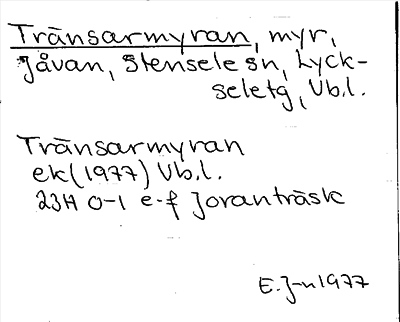 Tränsarmyran, myr,
Jåvan, Stensele sn, Lyck-
seletg, Vb.l.
Tränsarmyran
ek(1977) Vb.l.
23H 0-1 e-f Joranträsk
E.J-n 1977